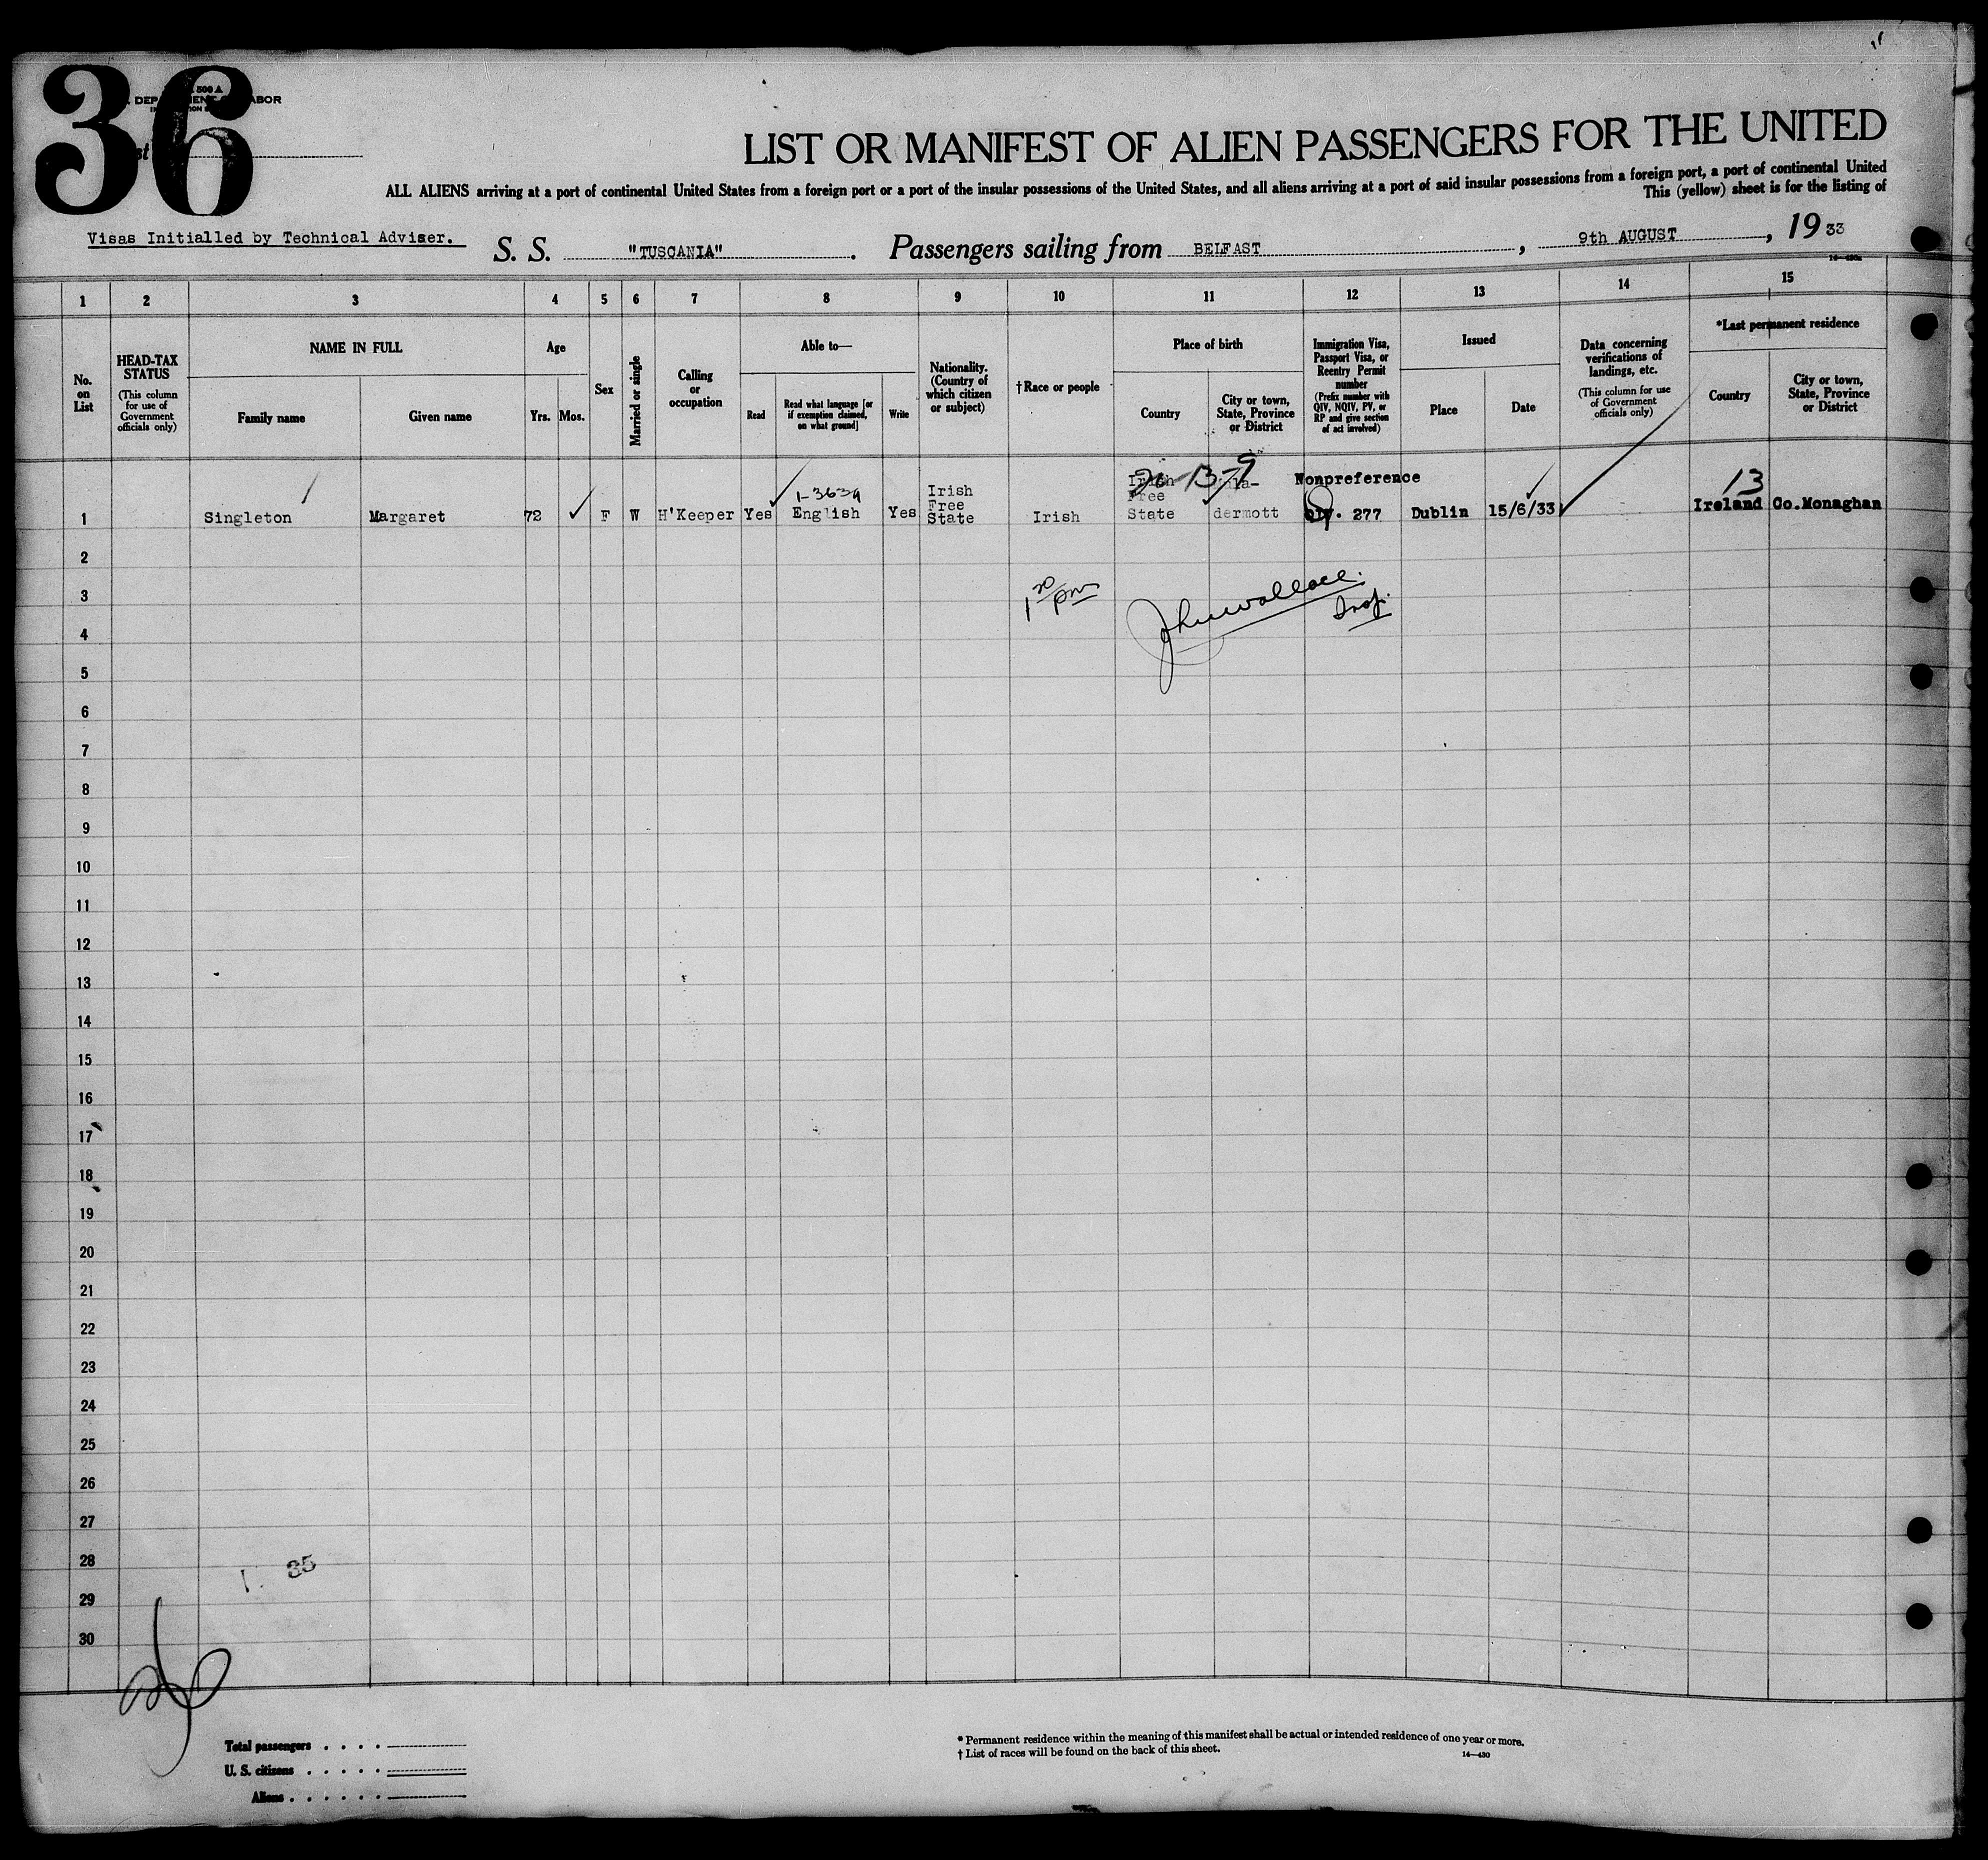 36
500 A
LIST OR MANIFEST OF ALIEN PASSENGERS FOR THE UNITED
ALL ALIENS arriving at a port of continental United States from a foreign port or a port of the insular possessions of the United States, and all aliens arriving at a port of said insular possessions from a foreign port, a port of continental United
This (yellow) sheet is for the listing of
Visas Initialled by Technical Adviser.
S. S. "TUSCANIA". Passengers sailing from BELFAST, 9th AUGUST, 19 33
1 2 3 4 5 6 7 8 9 10 11 12 13 14 15
No. on List
HEAD-TAX STATUS
(This column for use of Government officials only)
NAME IN FULL
Family name
Given name
Age
Yrs.
Mos.
Sex
Married or single
Calling or occupation
Able to—
Read
Read what language [or if exemption claimed, on what ground]
Write
Nationality. (Country of which citizen or subject)
†Race or people
Place of birth
Country
City or town, State, Province or District
Immigration Visa, Passport Visa, or Reentry Permit number
(Prefix number with QIV, NQIV, PV, or RP and give section of act involved)
Issued
Place
Date
Data concerning verifications of landings, etc.
(This column for use of Government officials only)
*Last permanent residence
Country
City or town, State, Province or District
1 Singleton Margaret 72 F W H'Keeper Yes English Yes Irish Free State Irish Irish Free State dermott Nonpreference 277 Dublin 15/6/33 13 Ireland Co.Monaghan
2
3
4
5
6
7
8
9
10
11
12
13
14
15
16
17
18
19
20
21
22
23
24
25
26
27
28
29
30
35
Total passengers
U. S. citizens
Aliens
* Permanent residence within the meaning of this manifest shall be actual or intended residence of one year or more.
† List of races will be found on the back of this sheet.
14—430